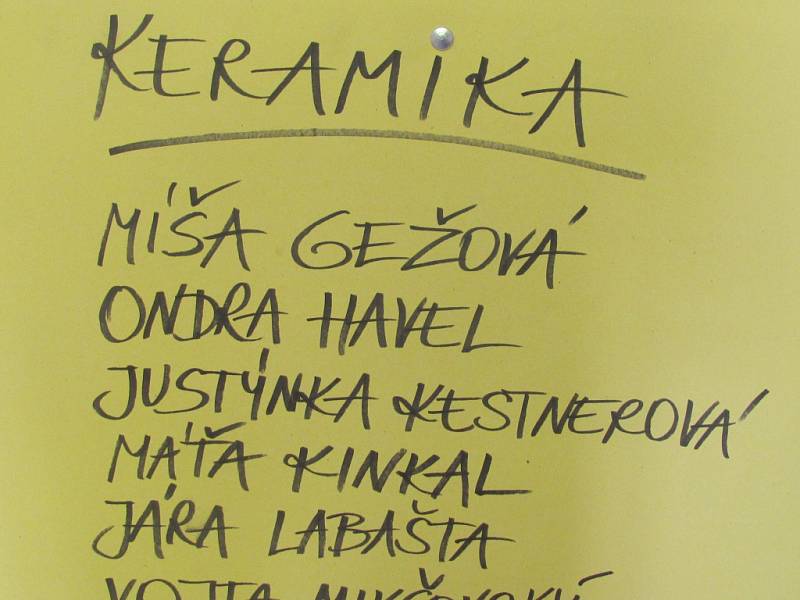 KERAMIKA
MÍŠA GEŽOVÁ
ONDRA HAVEL
JUSTÝNKA KESTNEROVÁ
MÁŤA KINKAL
JÁRA LABAŠTA
VOJTA